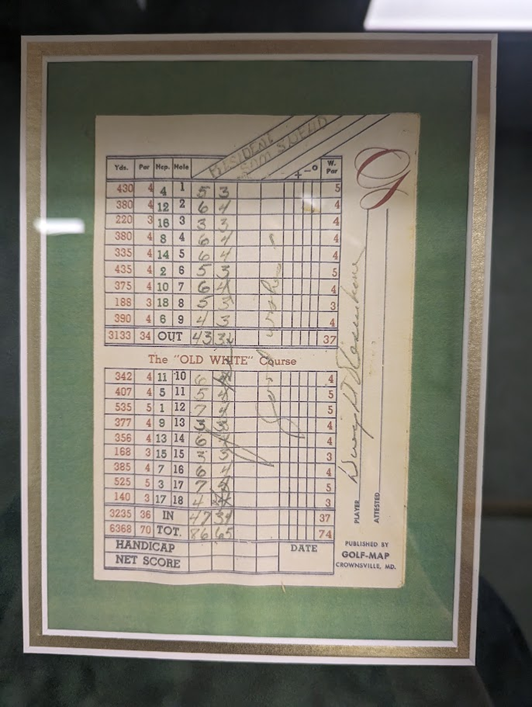 PRESIDENT
SAM SNEAD
Yds. Par Hcp. Hole + − o W. Par
430 4 4 1 5 3 5
380 4 12 2 6 4 4
220 3 16 3 3 3 4
380 4 8 4 6 4 4
335 4 14 5 6 4 4
435 4 2 6 5 3 5
375 4 10 7 6 4 4
188 3 18 8 5 3 3
390 4 6 9 4 3 4
3133 34 OUT 43 37
The "OLD WHITE" Course
342 4 11 10 6 4
407 4 5 11 5 5
535 5 1 12 7 5
377 4 9 13 3 4
356 4 13 14 6 4
168 3 15 15 3
385 4 7 16 6 4 4
525 5 3 17 7 5
140 3 17 18 4 3
3235 36 IN 37
6368 70 TOT. 86 65 74
HANDICAP DATE
NET SCORE
G
Dwight D Eisenhower
PLAYER
ATTESTED
PUBLISHED BY
GOLF-MAP
CROWNSVILLE, MD.